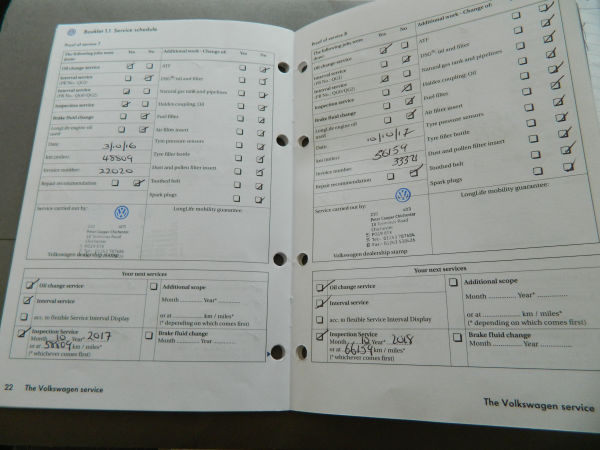 Booklet 1.1 Service schedule
Proof of service 7
The following jobs were done: Yes No
Oil change service
Interval service
(PR No.: QG1)
Interval service
(PR No.: QG0/QG2)
Inspection service
Brake fluid change
LongLife engine oil used
Date: 3/10/16
km (miles): 48809
Invoice number: 22020
Repair recommendation
Additional work - Change of: Yes No
ATF
DSG® oil and filter
Natural gas tank and pipelines
Haldex coupling: Oil
Fuel filter
Air filter insert
Tyre pressure sensors
Tyre filler bottle
Dust and pollen filter insert
Toothed belt
Spark plugs
Service carried out by:
Peter Cooper Chichester
Chichester
Volkswagen dealership stamp
LongLife mobility guarantee:
Your next services
Oil change service
Interval service
acc. to flexible Service Interval Display
Inspection Service
Month 10 Year* 2017
or at 58809 km / miles*
(* whichever comes first)
Additional scope
Month Year*
or at km / miles*
(* depending on which comes first)
Brake fluid change
Month Year
22 The Volkswagen service
Proof of service 8
The following jobs were done: Yes No
Oil change service
Interval service
(PR No.: QG1)
Interval service
(PR No.: QG0/QG2)
Inspection service
Brake fluid change
LongLife engine oil used
Date: 10/10/17
km (miles): 56154
Invoice number: 33321
Repair recommendation
Additional work - Change of: Yes No
ATF
DSG® oil and filter
Natural gas tank and pipelines
Haldex coupling: Oil
Fuel filter
Air filter insert
Tyre pressure sensors
Tyre filler bottle
Dust and pollen filter insert
Toothed belt
Spark plugs
Service carried out by:
Peter Cooper Chichester
Chichester
Volkswagen dealership stamp
LongLife mobility guarantee:
Your next services
Oil change service
Interval service
acc. to flexible Service Interval Display
Inspection Service
Month 10 Year* 2018
or at 66154 km / miles*
(* whichever comes first)
Additional scope
Month Year*
or at km / miles*
(* depending on which comes first)
Brake fluid change
Month Year
The Volkswagen service